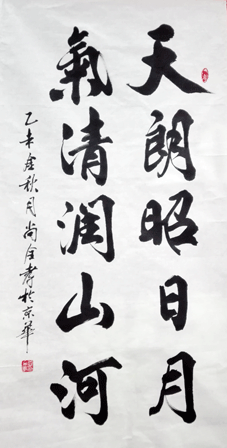 天朗昭日月
氣清润山河
乙未年秋月尚全孝於京華